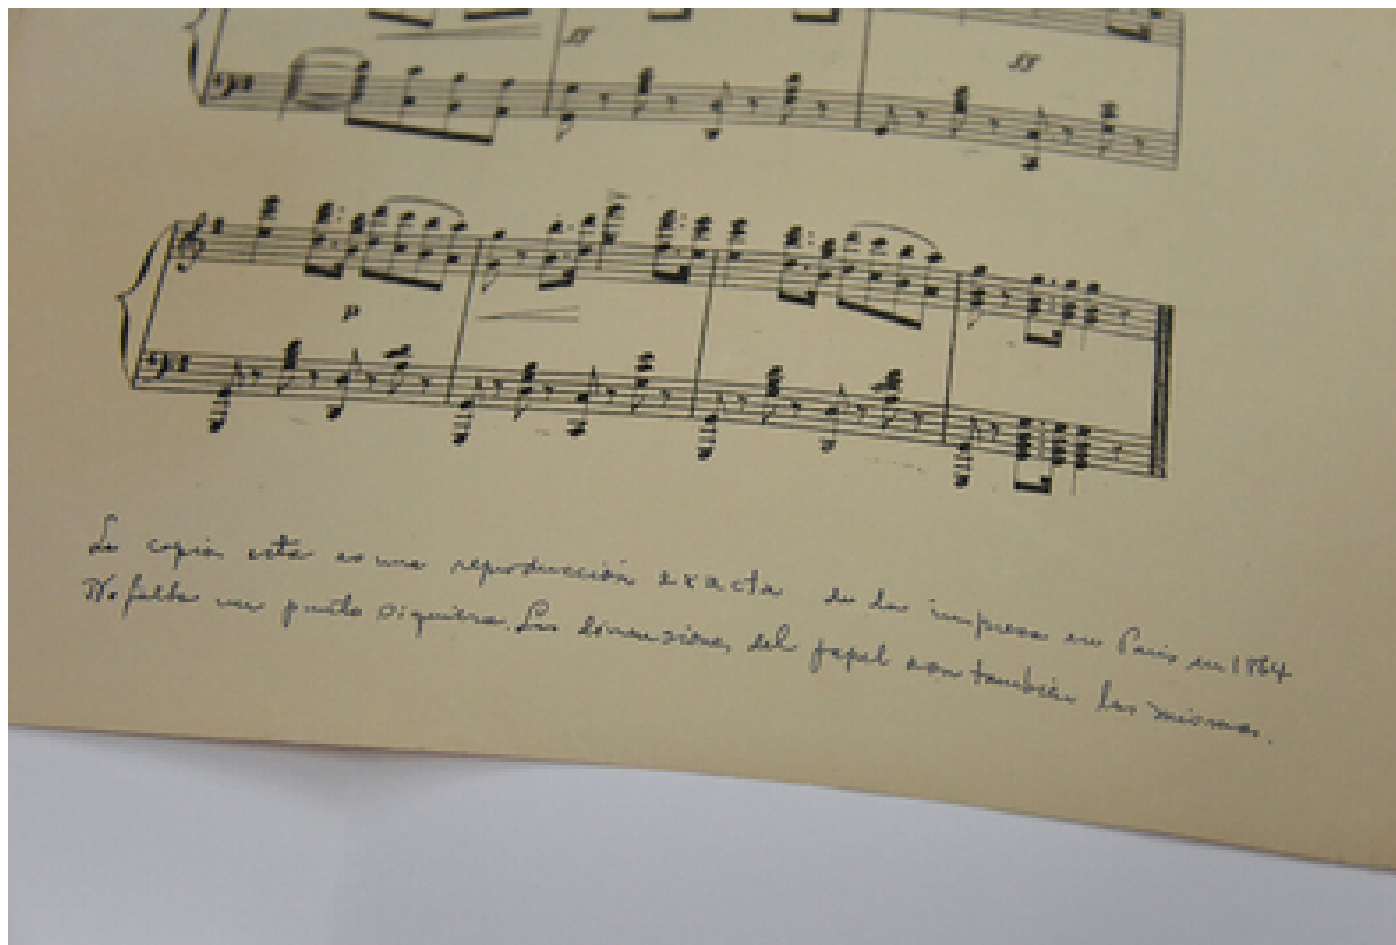 ff
ff
p
La copia esta es una reproducción exacta de la impresa en Paris en 1864
No falta un punto siquiera. Las dimensiones del papel son también las mismas.